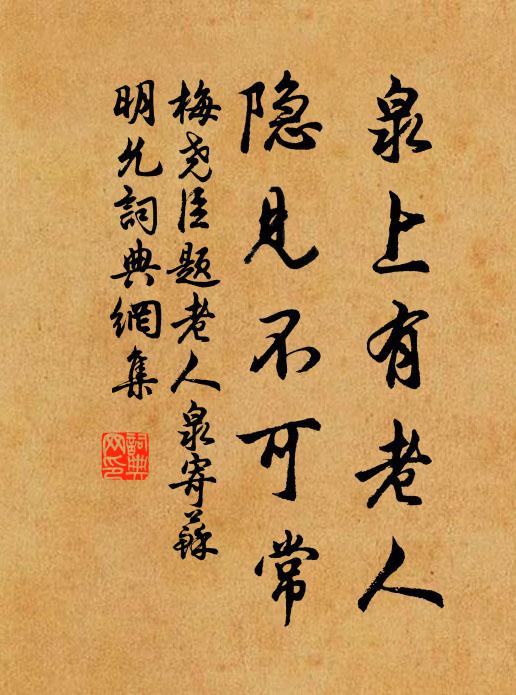 泉上有老人
隐见不可常
梅尧臣题老人泉寄蘇
明允詞典網集
詞典网印